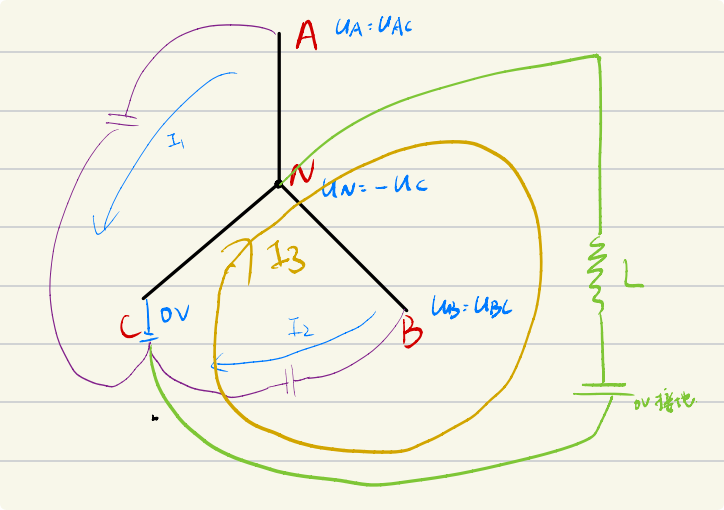 A
UA=UAC
I1
N
UN=-UC
I3
L
C
0V
I2
B
UB=UBC
0V接地